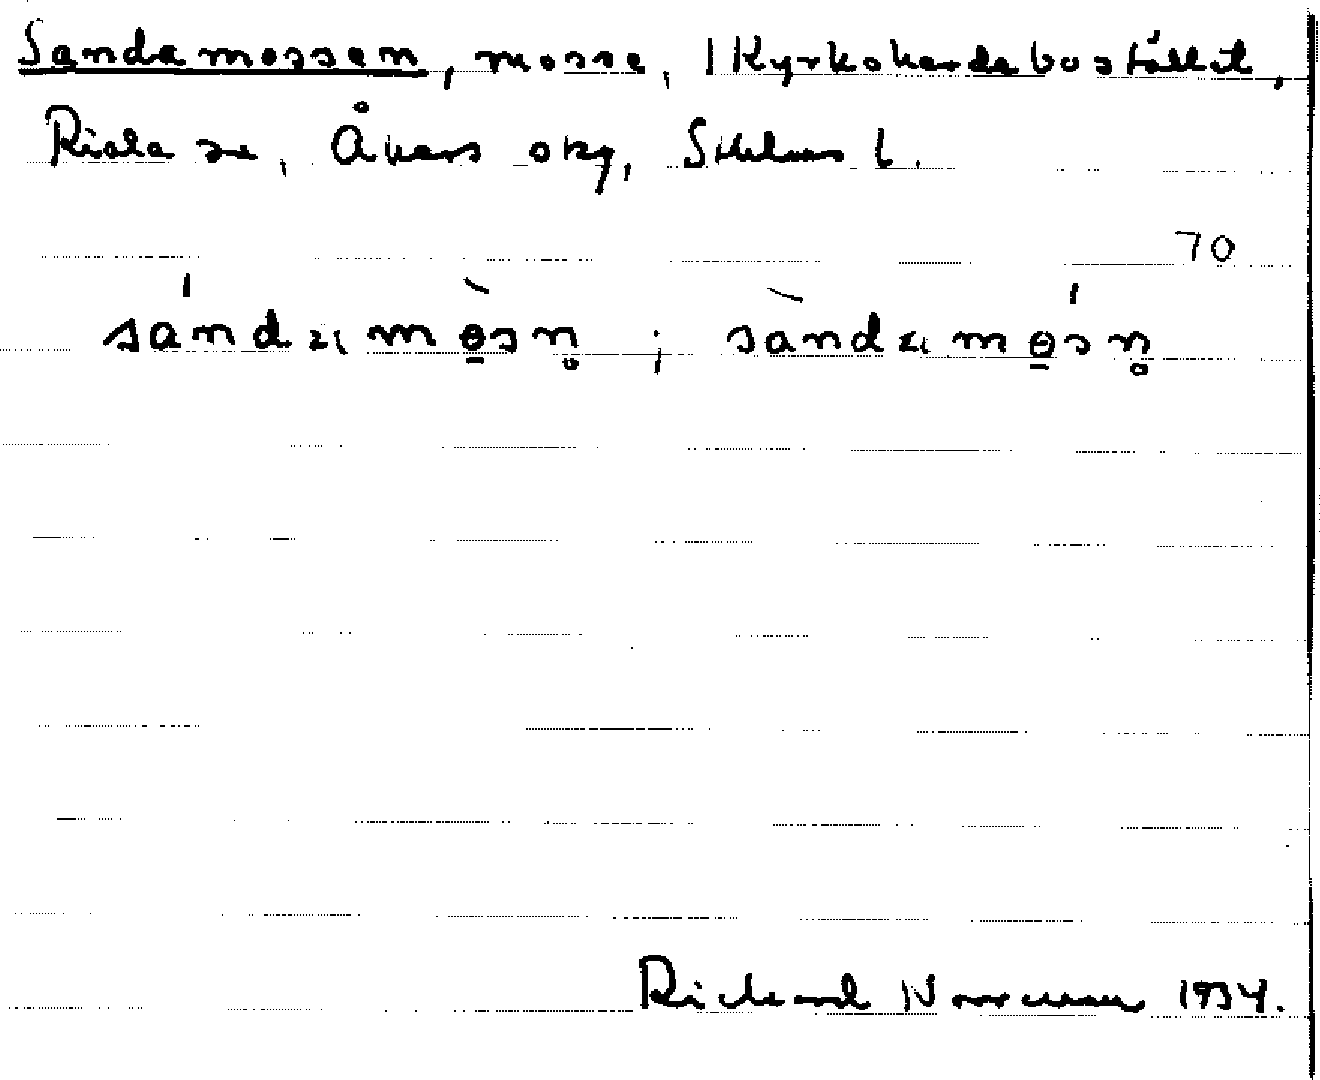 Sandamossen, mosse, 1 Kyrkoherdebostället,
Riala sn, Åkers skg, Sthlms l.
70
Richard Norrman 1934.